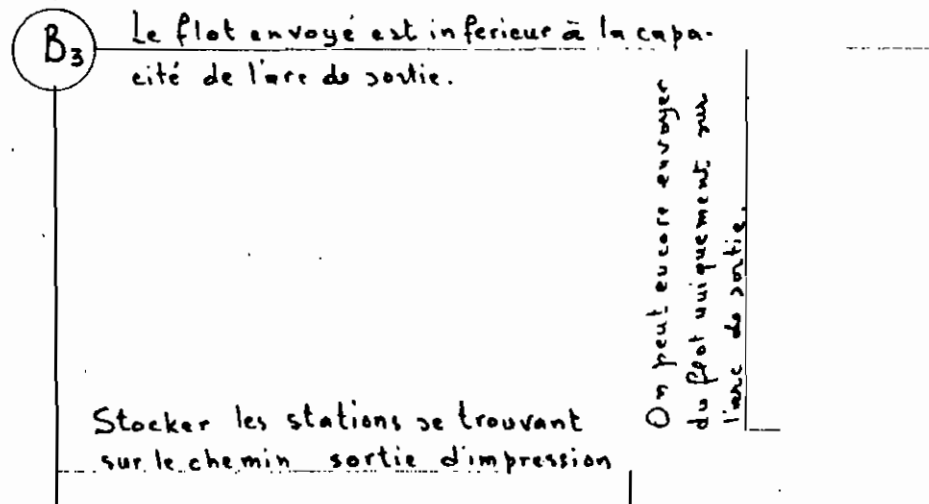 B3
Le flot envoyé est inferieur à la capa-
cité de l'arc de sortie.
On peut encore envoyer
du flot uniquement sur
l'arc de sortie.
Stocker les stations se trouvant
sur le chemin sortie d'impression